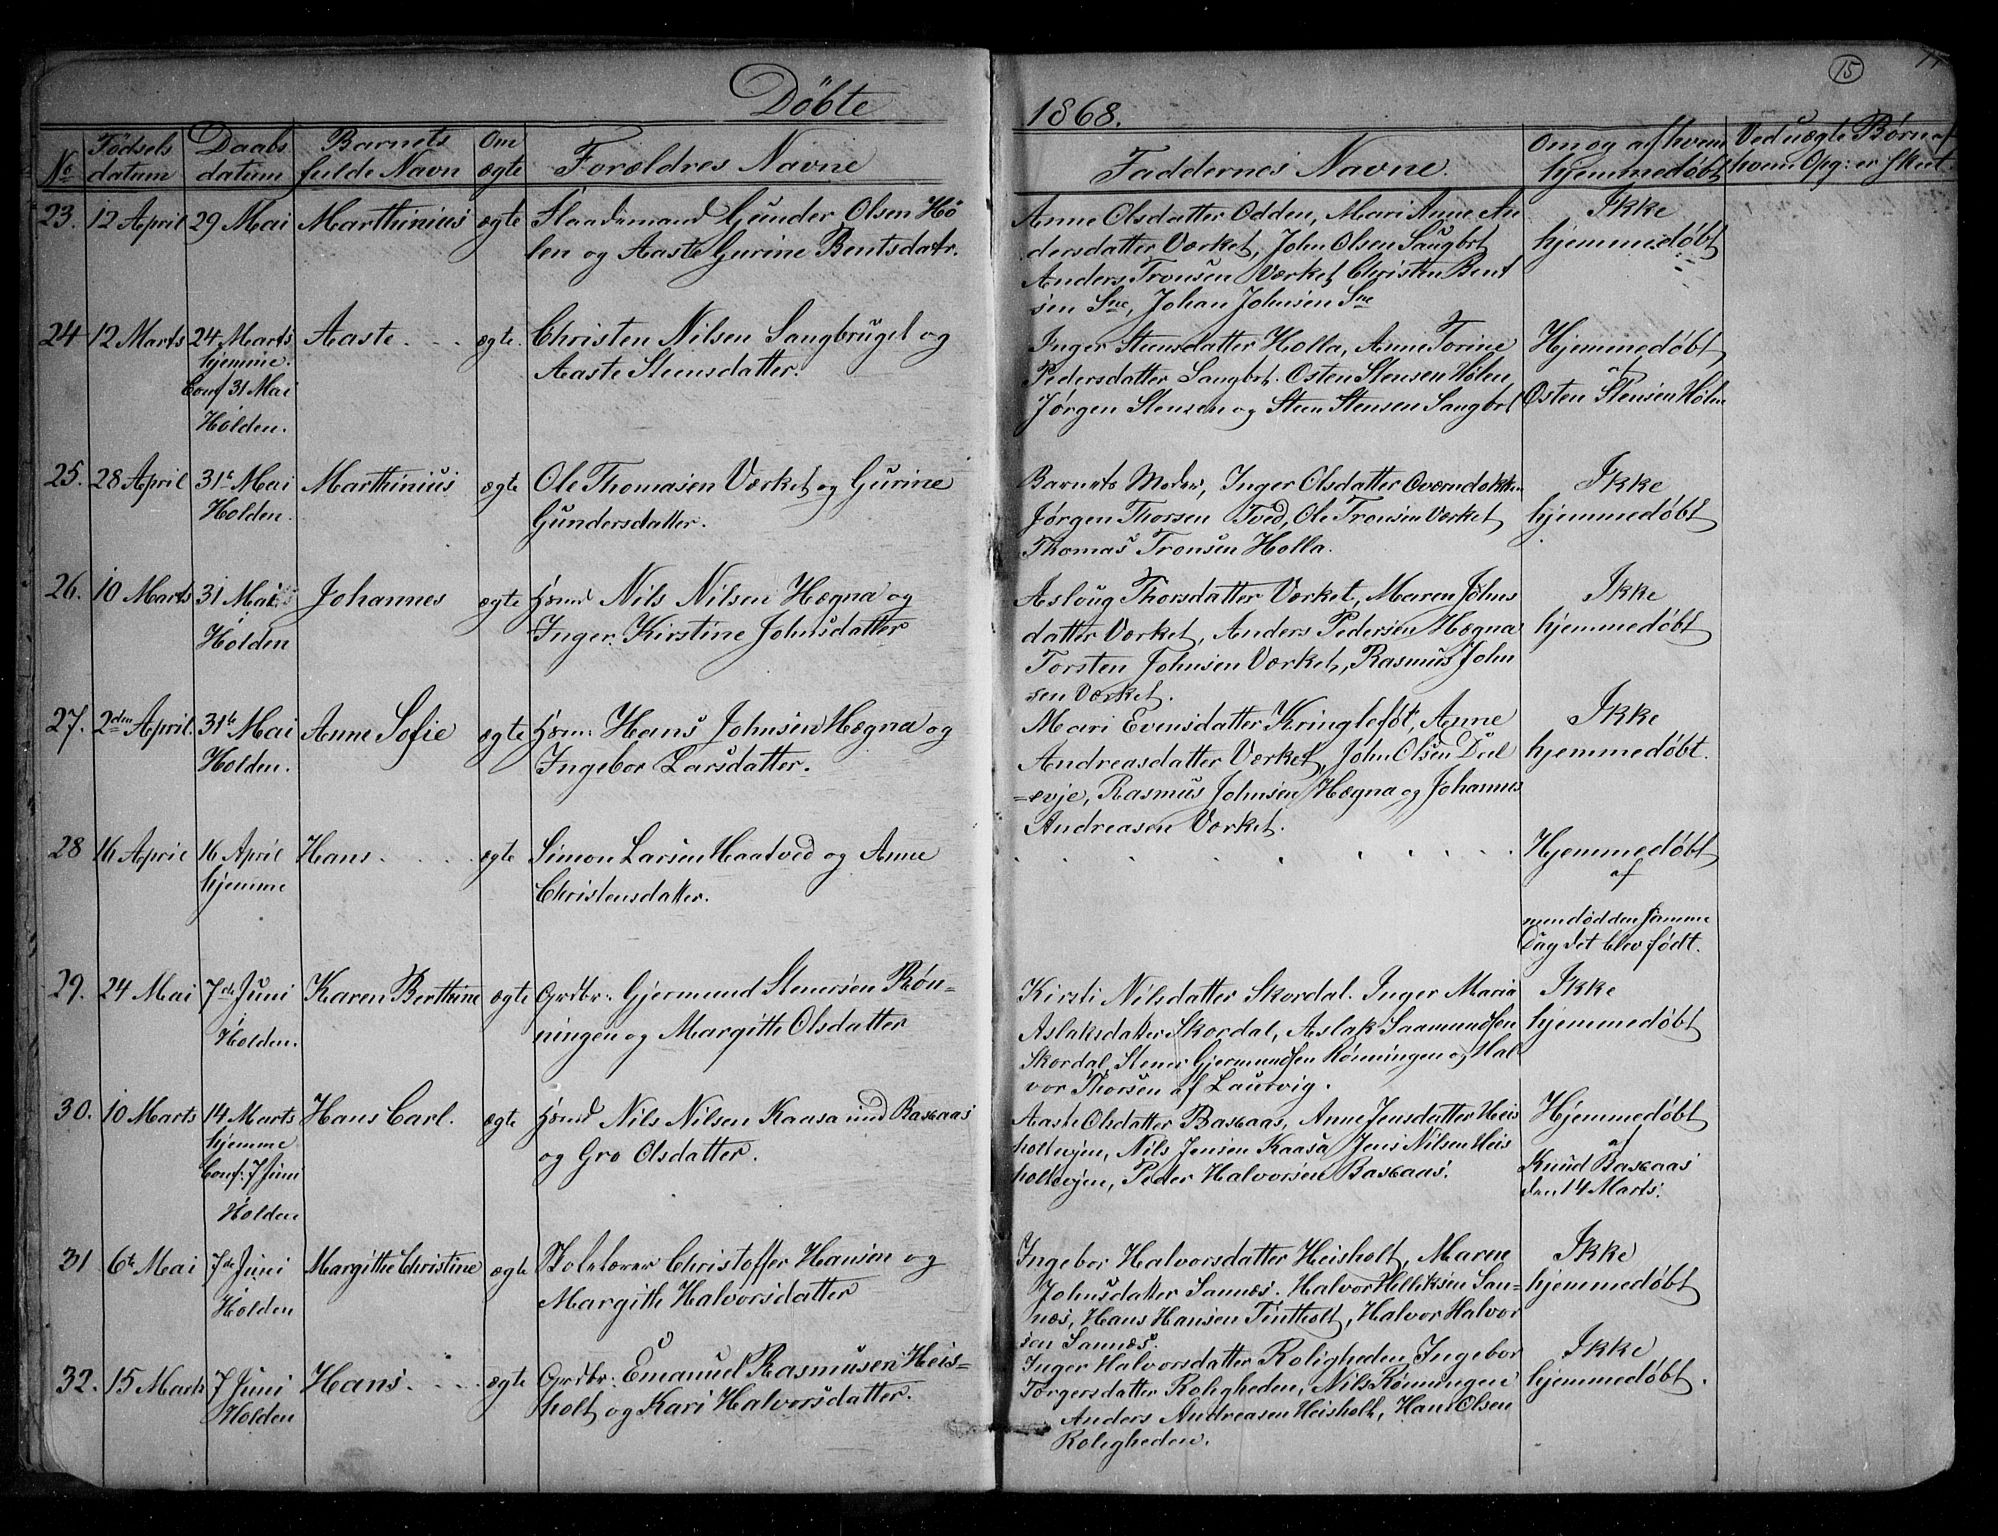 15
Döbte
1868.
No
Födsels datum
Daabs datum
Barnets fulde Navn
Om ægte
Forældres Navne
Faddernes Navne.
Om og af hvem hjemmedøbt
Ved uægte Børn af hvem Opg: er skeet.
23. 12 April 29 Mai Marthinius ægte Gunder Olsen Hö
len og Aaste Gurine Bentsdatr.
Anne Olsdatter Odden, Mari Anne An
dersdatter Værket, John Olsen Saugbrt
Anders Tronsen Værket Christen Bent
sen Sne, Johan Johnsen Sne
Ikke
hjemmedøbt
24 12 Marts 24 Marts Aaste ægte. Christen Nilsen Saugbruget og
hjemme.
Conf 31 Mai
Holden.
Aaste Stensdatter.
Inger Stensdatter Holla, Anne Torine
Pedersdatter Saugbrt. Osten Stensen Hølen,
Jørgen Stensen og Steen Stensen Saugbrt
Hjemmedøbt
af
Osten Stensen Hølen
25. 28 April 31te Mai Marthinius ægte Ole Thomasen Værket og Gurine
Holden.
Gundersdatter.
Barnets Moder, Inger Olsdatter
Jørgen Thorsen Tved, Ole Tronsen Værket
Thomas Tronsen Holla.
Ikke
hjemmedøbt
26. 10 Marts 31 Mai Johannes ægte Nils Nilsen Hægna og
i
Holden
Inger Kirstine Johnsdatter
Aslaug Thorsdatter Værket, Maren Johns
datter Værket, Anders Pedersen Hægna
Torsten Johnsen Værket, Rasmus John
sen Værket.
Ikke
hjemmedøbt
27. 2den April. 31te Mai Anne Sofie ægte Hans Johnsen Hægna og
Holden.
Ingebor Larsdatter.
Mari Evensdatter Kringlefot, Anne
Andreasdatter Værket, John Olsen Dal
=evje, Rasmus Johnsen Hægna og Johannes
Andreasen Værket.
Ikke
hjemmedøbt.
28 16 April 16 April Hans ægte Simon Larsen Haatved og Anne
hjemme
Christensdatter.
Hjemmedøbt
af
men død den samme
Dag det blev født.
29. 24 Mai 7de Juni Karen Berthine ægte Grdbr: Gjermund Stenersen Røn-
i
Holden.
ningen og Margitte Olsdatter
Kirsti Nilsdatter Skordal. Inger Maria
Aslaksdatter Skordal, Aslak Saamundsen
Skordal, Stener Gjermundsen Rønningen og Hal
vor Thorsen af Laurvig.
Ikke
hjemmedøbt
30. 10 Marts 14 Marts Hans Carl. ægte Nils Nilsen Kaasa ind
hjemme
Conf: 7 Juni
Holden
og Gro Olsdatter.
Aaste Olsdatter Anne Jensdatter Heis
holtvejen, Nils Jensen Kaasa Jens Nilsen Heis
holtvejen, Peder Halvorsen
Hjemmedøbt
af
Knud
den 14 Marts.
31 6te Mai 7de Juni Margithe Christine ægte Skolelærer Christoffer Hansen og
i
Holden
Margith Halvorsdatter
Ingebor Halvorsdatter Heisholt, Maren
Johnsdatter Sannæs. Halvor Helliksen San-
næs, Hans Hansen Tintholt, Halvor Halvor
sen Sannæs.
Ikke
hjemmedøbt
32. 15 Marts 7 Juni Hans ægte Grdbr: Emanuel Rasmusen Heis=
Holden
holt og Kari Halvorsdatter.
Inger Halvorsdatter Roligheden, Ingebor
Torgersdatter Roligheden, Nils Rønningen
Anders Andreasen Heisholt, Hans Olsen
Roligheden.
Ikke
hjemmedøbt.